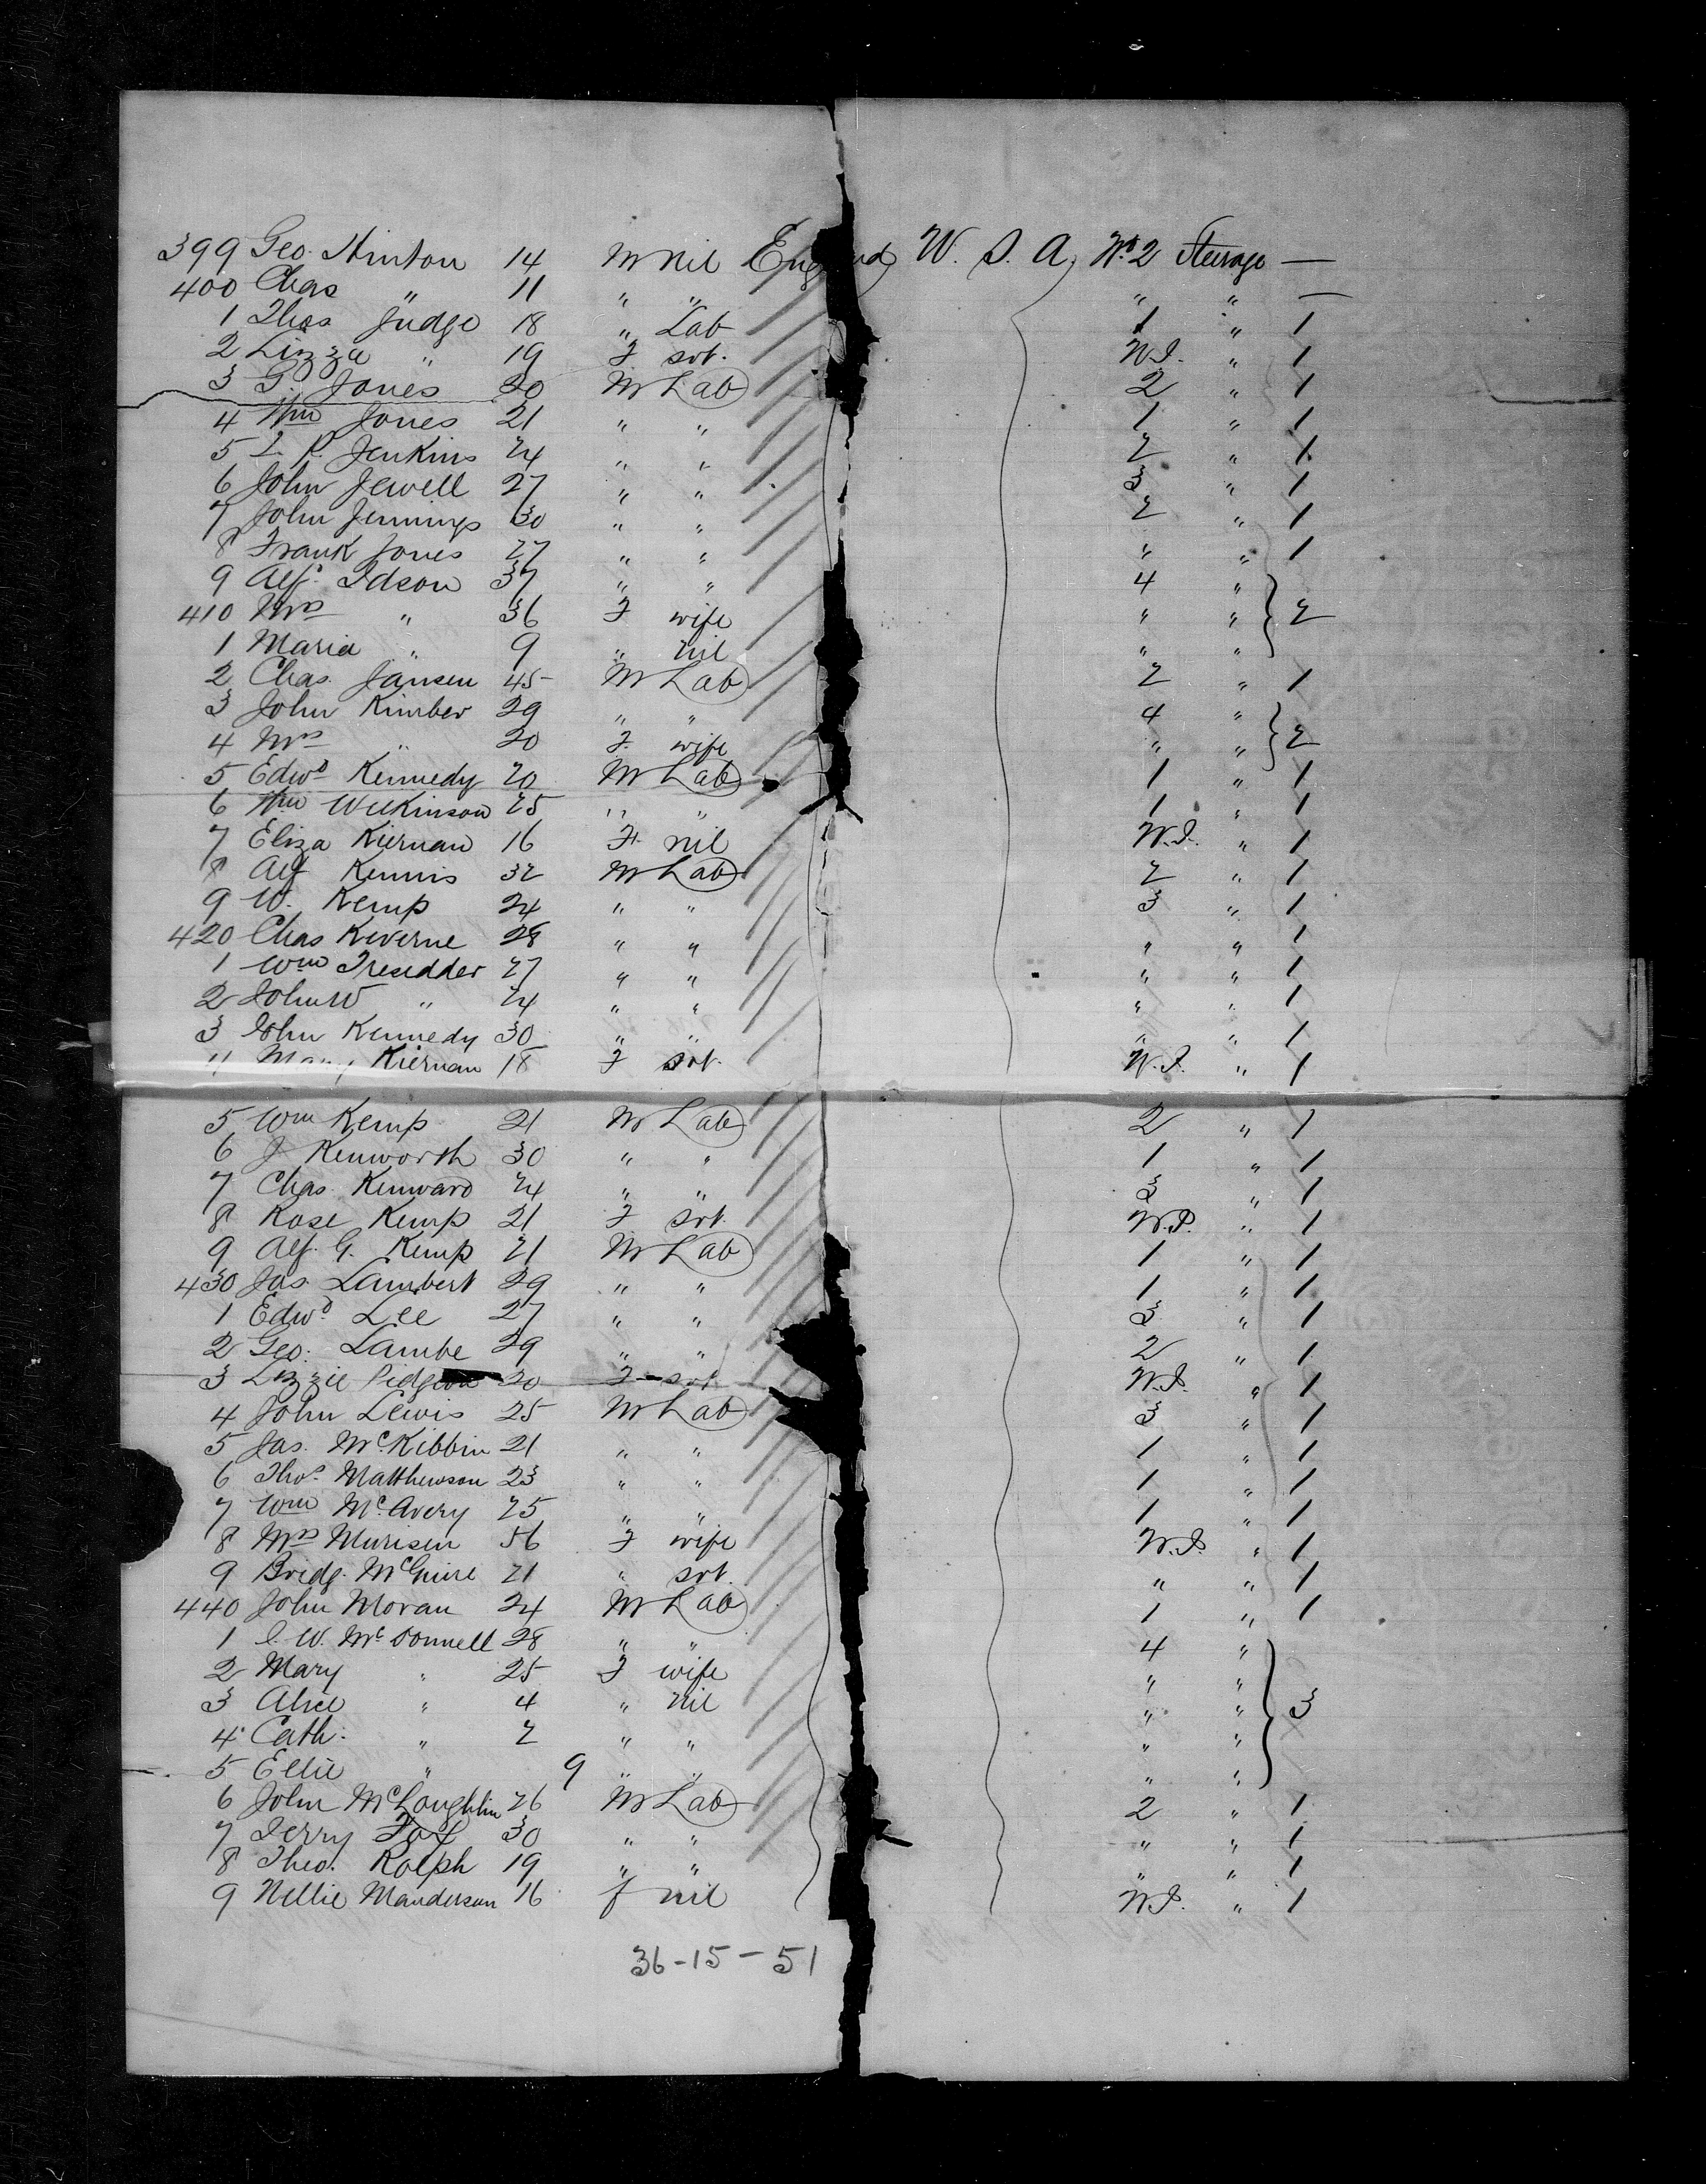 399 Geo. Hinton 14 M nil England U. S. A, No 2 Steerage —
400 Chas " 11 " " " " —
1 Thos Judge 18 " Lab 1 " 1
2 Lizzie " 19 F svt. W.S. " 1
3 G. Jones 20 M Lab 2 " 1
4 Wm Jones 21 " " 1 " 1
5 L. P. Jenkins 24 " " 2 " 1
6 John Jewell 27 " " 3 " 1
7 John Jennings 30 " " 2 " 1
8 Frank Jones 27 " " " " 1
9 Alf. Idson 37 " " 4 "
410 Mrs " 36 F wife " " 2
1 Maria " 9 " nil " "
2 Chas. Jansen 45 M Lab 2 " 1
3 John Kimber 29 " " 4 "
4 Mrs " 20 F. wife " " 2
5 Edwd Kennedy 20 M Lab 1 " 1
6 Wm Wilkinson 25 " " 1 " 1
7 Eliza Kiernan 16 F. nil W.S. " 1
8 Alf Kennis 32 M Lab 2 " 1
9 W. Kemp 24 " " 3 " 1
420 Chas Keverne 28 " " " " 1
1 Wm Tresidder 27 " " " " 1
2 John W " 24 " " " " 1
3 John Kennedy 30 " " " " 1
4 Mary Kiernan 18 F svt. W.S. " 1
5 Wm Kemp 21 M Lab 2 " 1
6 J Kenworth 30 " " 1 " 1
7 Chas. Kenward 24 " " 3 " 1
8 Rose Kemp 21 F svt. W.S. " 1
9 Alf. G. Kemp 21 M Lab 1 " 1
430 Jas Lambert 29 " " 1 " 1
1 Edwd Lee 27 " " 3 " 1
2 Geo. Lambe 29 " " 2 " 1
3 Lizzie Pidgeon 20 F svt W.S. " 1
4 John Lewis 25 M Lab 3 " 1
5 Jas. McKibbin 21 " " 1 " 1
6 Thos. Matthewson 23 " " 1 " 1
7 Wm McAvery 25 " " 1 " 1
8 Mrs Murisen 56 F wife W.S. " 1
9 Bridg. McGuire 21 " svt. " " 1
440 John Moran 24 M Lab 1 " 1
1 J. W. McDonnell 28 " " 4 "
2 Mary " 25 F wife " "
3 Alice " 4 " nil " " 3
4 Cath. " 2 " " " "
5 Ellie " 9 " " " "
6 John McLoughlin 26 M Lab 2 " 1
7 Jerry Foy 30 " " " " 1
8 Theo. Rolph 19 " " " " 1
9 Nellie Manderson 16 f nil W.S. " 1
36-15-51